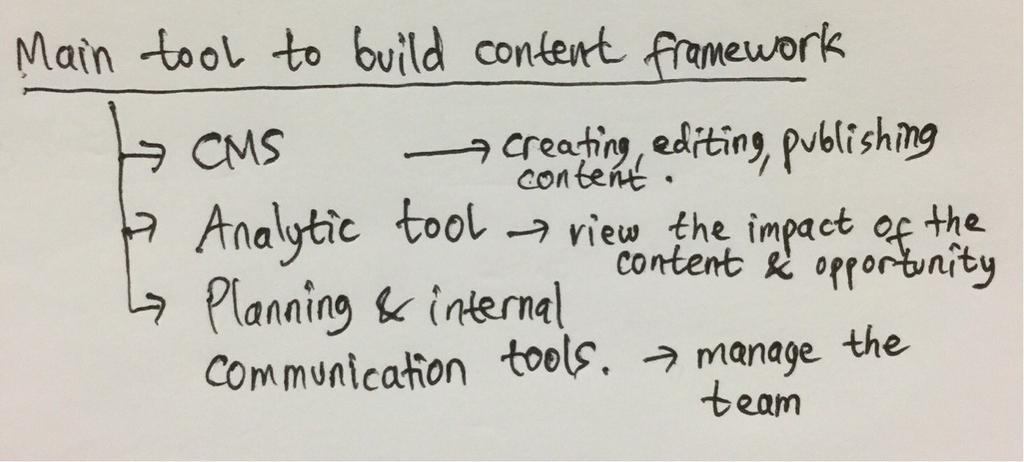 Main tool to build content framework
CMS → creating, editing, publishing
content.
Analytic tool → view the impact of the
content & opportunity
Planning & internal
communication tools. → manage the
team